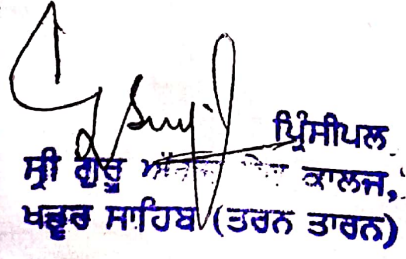 ਪ੍ਰਿੰਸੀਪਲ
ਸ੍ਰੀ ਗੁਰੂ ਕਾਲਜ,
ਖਡੂਰ ਸਾਹਿਬ (ਤਰਨ ਤਾਰਨ)